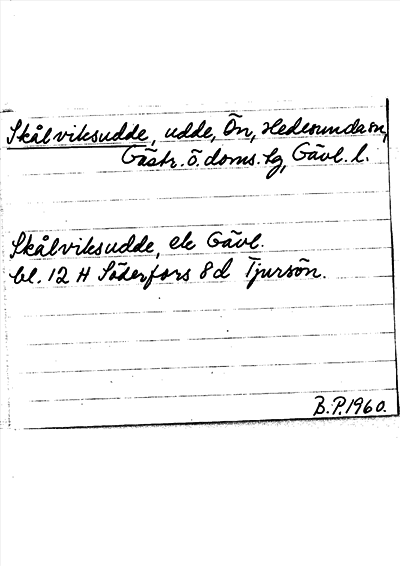 Skålviksudde, udde, Ön, Hedesunda sn,
Gästr. ö. doms. tg, Gävl. l.
Skålviksudde, ek Gävl.
bl. 12 H Söderfors 8 d Tjursön.
B.P. 1960.